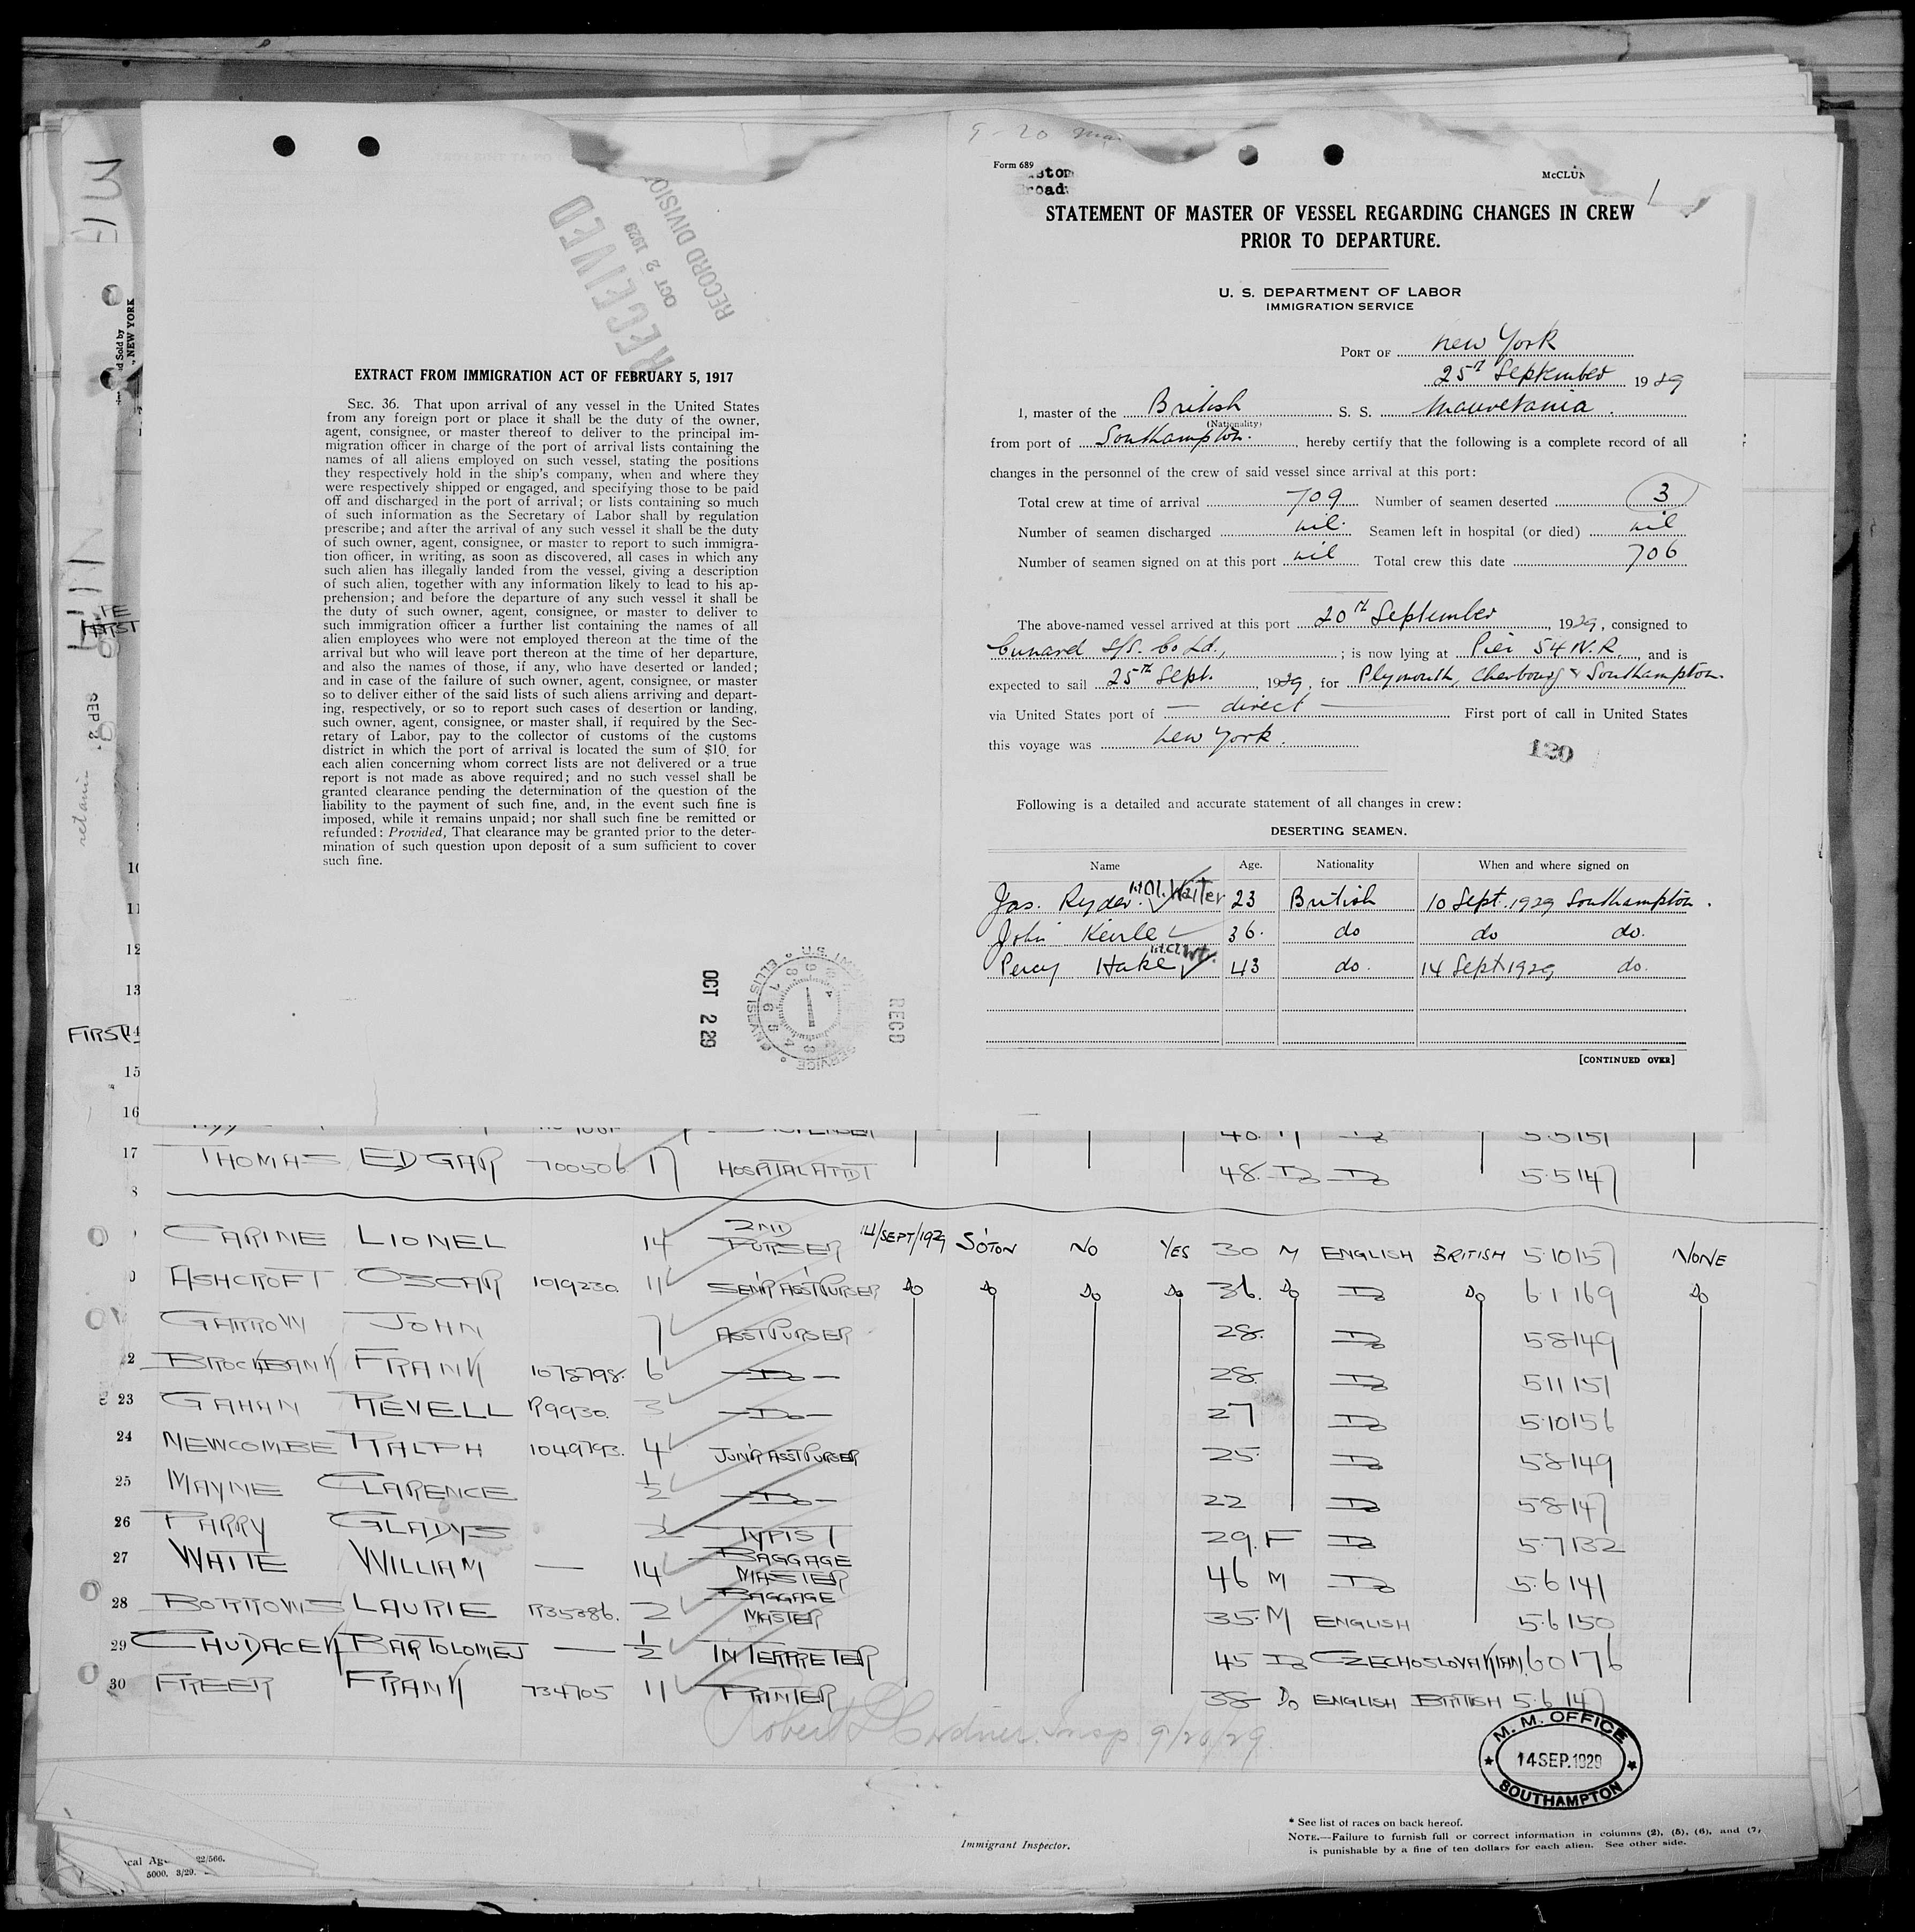 RECEIVED
OCT 2 1929
RECORD DIVISION
EXTRACT FROM IMMIGRATION ACT OF FEBRUARY 5, 1917
SEC. 36. That upon arrival of any vessel in the United States
from any foreign port or place it shall be the duty of the owner,
agent, consignee, or master thereof to deliver to the principal im-
migration officer in charge of the port of arrival lists containing the
names of all aliens employed on such vessel, stating the positions
they respectively hold in the ship's company, when and where they
were respectively shipped or engaged, and specifying those to be paid
off and discharged in the port of arrival; or lists containing so much
of such information as the Secretary of Labor shall by regulation
prescribe; and after the arrival of any such vessel it shall be the duty
of such owner, agent, consignee, or master to report to such immigra-
tion officer, in writing, as soon as discovered, all cases in which any
such alien has illegally landed from the vessel, giving a description
of such alien, together with any information likely to lead to his ap-
prehension; and before the departure of any such vessel it shall be
the duty of such owner, agent, consignee, or master to deliver to
such immigration officer a further list containing the names of all
alien employees who were not employed thereon at the time of the
arrival but who will leave port thereon at the time of her departure,
and also the names of those, if any, who have deserted or landed;
and in case of the failure of such owner, agent, consignee, or master
so to deliver either of the said lists of such aliens arriving and depart-
ing, respectively, or so to report such cases of desertion or landing,
such owner, agent, consignee, or master shall, if required by the Sec-
retary of Labor, pay to the collector of customs of the customs
district in which the port of arrival is located the sum of $10 for
each alien concerning whom correct lists are not delivered or a true
report is not made as above required; and no such vessel shall be
granted clearance pending the determination of the question of the
liability to the payment of such fine, and, in the event such fine is
imposed, while it remains unpaid; nor shall such fine be remitted or
refunded: Provided, That clearance may be granted prior to the deter-
mination of such question upon deposit of a sum sufficient to cover
such fine.
OCT 2 29
RECD
Form 689
STATEMENT OF MASTER OF VESSEL REGARDING CHANGES IN CREW
PRIOR TO DEPARTURE.
U. S. DEPARTMENT OF LABOR
IMMIGRATION SERVICE
PORT OF New York
25th September 1929
I, master of the British S. S. Mauretania.
(Nationality)
from port of Southampton. , hereby certify that the following is a complete record of all
changes in the personnel of the crew of said vessel since arrival at this port:
Total crew at time of arrival 709 Number of seamen deserted 3
Number of seamen discharged nil. Seamen left in hospital (or died) nil
Number of seamen signed on at this port nil Total crew this date 706
The above-named vessel arrived at this port 20th September, 1929, consigned to
Cunard S/S. Co Ld., ; is now lying at Pier 54 N.R., and is
expected to sail 25th Sept. , 1929, for Plymouth, Cherbourg & Southampton.
via United States port of — direct — First port of call in United States
this voyage was New York.
120
Following is a detailed and accurate statement of all changes in crew:
DESERTING SEAMEN.
Name Age. Nationality When and where signed on
Jas. Ryder. Waiter 23 British 10 Sept. 1929 Southampton.
John 36. do do do.
Percy Hake 43 do. 14 Sept 1929 do.
[CONTINUED OVER]
10
11
12
13
FIRST 14
15
16
17 THOMAS EDGAR 700506 17 HOSPITAL ATTDT 48. Do Do 5.5 147
CARINE LIONEL 14 2ND PURSER 14/SEPT/1929 SOTON NO YES 30 M ENGLISH BRITISH 5.10 157 NONE
ASHCROFT OSCAR 1019230. 11 SEN'R ASST PURSER Do Do Do Do 36. Do Do Do 6.1 169 Do
GARROW JOHN 7 ASST PURSER 28. Do 5.8 149
BROCKBANK FRANK 1078798. 6 —Do— 28. Do 5 11 151
23 GAHAN REVELL R9930. 3 —Do— 27 Do 5.10 156
24 NEWCOMBE RALPH 1049793. 4 JUN'R ASST PURSER 25. Do 5 8 149
25 MAYNE CLARENCE 1/2 —Do— 22 Do 5.8 147
26 PARRY GLADYS TYPIST 29. F Do 5.7 132
27 WHITE WILLIAM — 14 BAGGAGE MASTER 46 M Do 5.6 141
28 BORROWS LAURIE R35386. 2 BAGGAGE MASTER 35. M ENGLISH 5.6 150
29 CHUDACEK BARTOLOMEJ — 1/2 INTERPRETER 45 Do CZECHOSLOVAKIAN 6 0 176
30 FREER FRANK 734705 11 PRINTER 38 Do ENGLISH BRITISH 5.6 147
Insp. 9/20/29.
M. M. OFFICE
14 SEP. 1929
SOUTHAMPTON
Immigrant Inspector.
* See list of races on back hereof.
NOTE.—Failure to furnish full or correct information in columns (2), (5), (6), and (7,
is punishable by a fine of ten dollars for each alien. See other side.
22/566.
5000. 3/29.